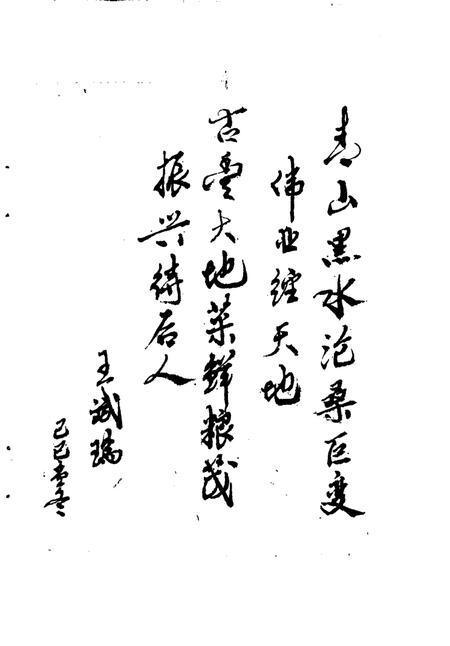 青山黑水沧桑巨变
伟业经天地
古臺大地菜鲜粮茂
振兴待后人
王斌瑞
己巳孟冬